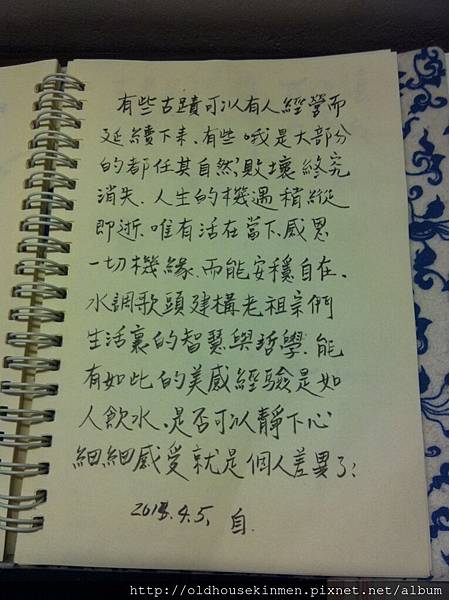 有些古蹟可以有人經營而
延續下來、有些哦是大部分
的都任其自然、敗壞終究
消失、人生的機遇稍縱
即逝、唯有活在當下、感恩
一切機緣、而能安穩自在、
水調歌頭建構老祖宗們
生活裏的智慧與哲學、能
有如此的美感經驗是如
人飲水、是否可以靜下心
細細感受就是個人差異了!
4.5.
自.
http://oldhousekinmen.pixnet.net/album